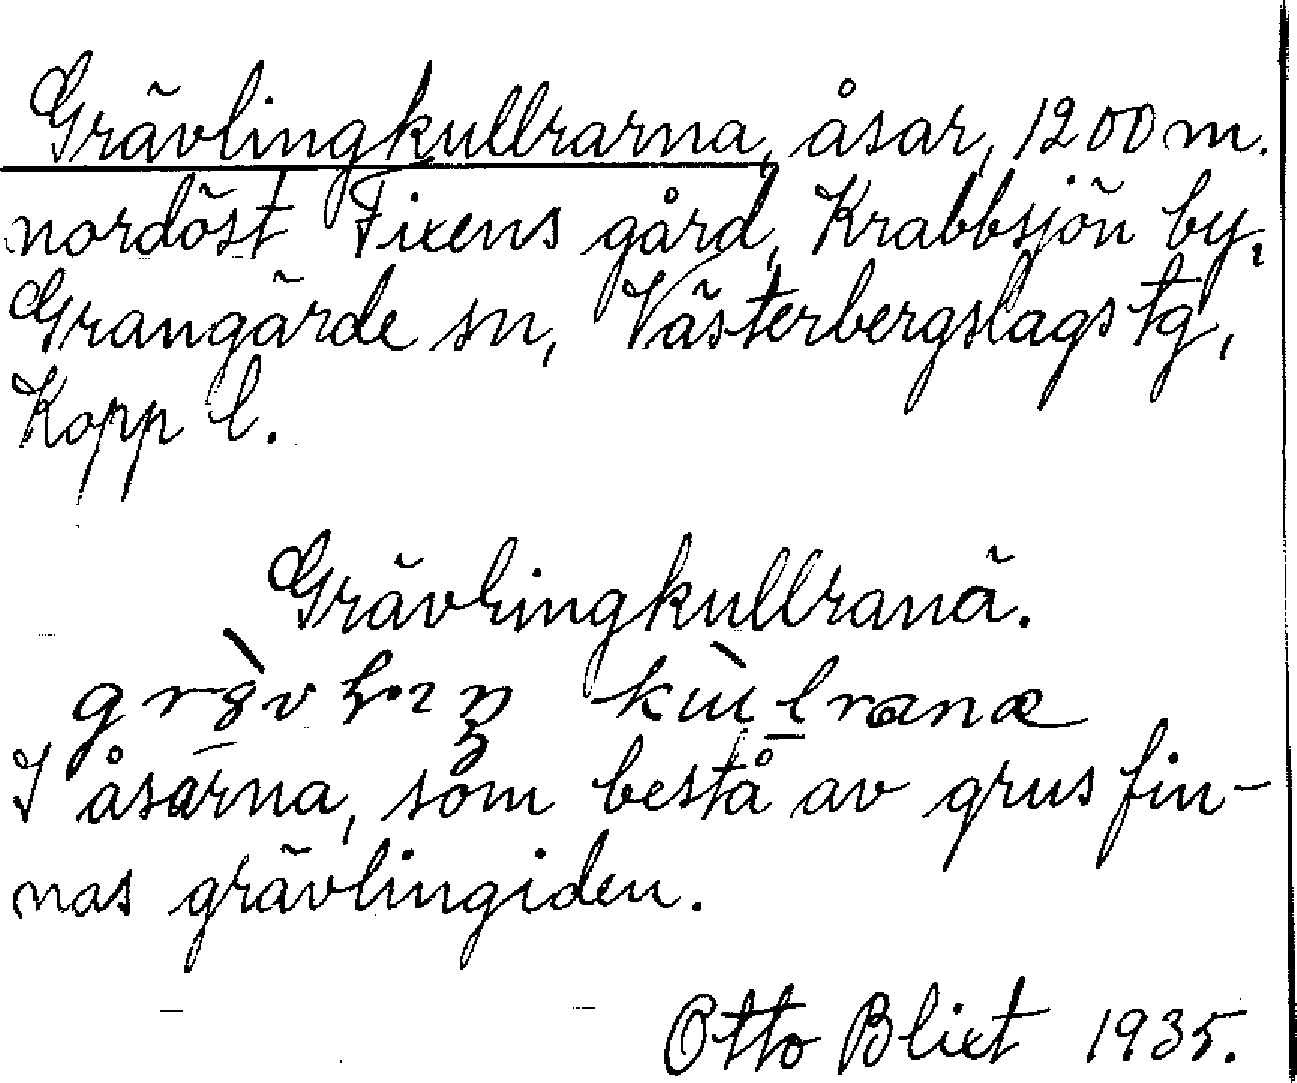 Grävlingkullrarna, åsar, 1200 m.
nordöst Fixens gård, Krabbsjön by,
Grangärde sn, Västerbergslags tg,
Kopp l.
Grävlingkullranä.
I åsarna, som bestå av grus fin-
nas grävlingiden.
Otto Blixt 1935.